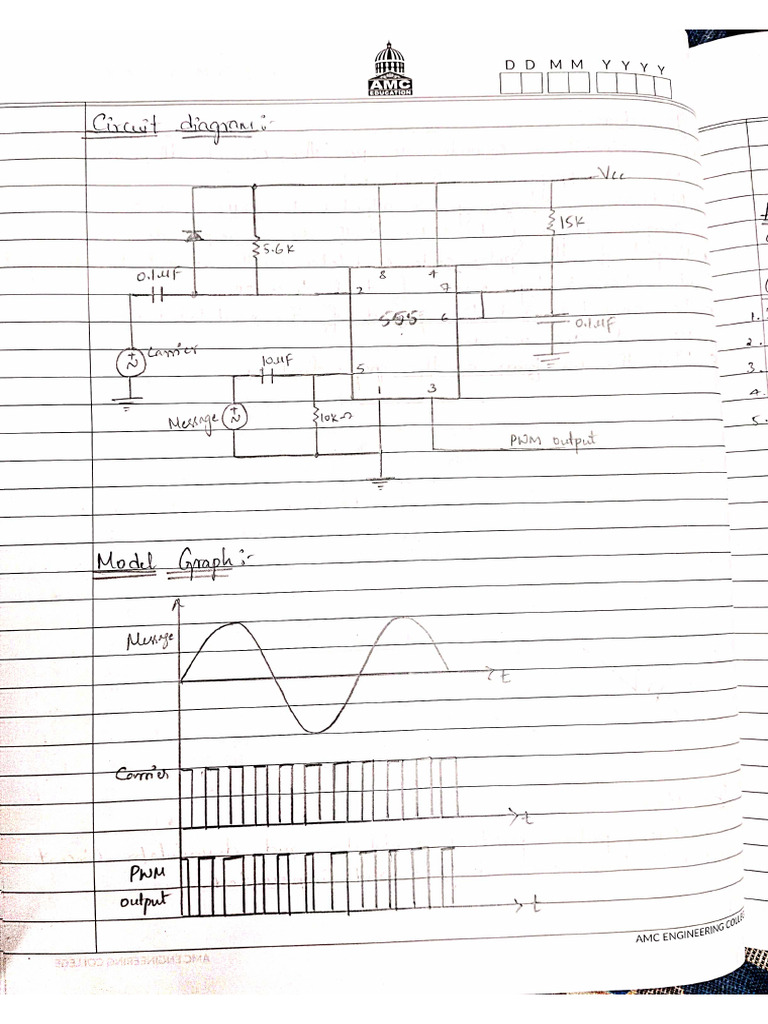 AMC
EDUCATION
D D M M Y Y Y Y
Circuit diagram:-
Vcc
15K
5.6K
0.1µF
8 4
2 7
555 6
0.1µF
Carrier
10µF
5
1 3
Message
10KΩ
PWM output
Model Graph:-
Message
t
Carrier
t
PWM
output
t
1.
2.
3.
4.
5.
AMC ENGINEERING COLLE
AMC ENGINEERING COLLEGE